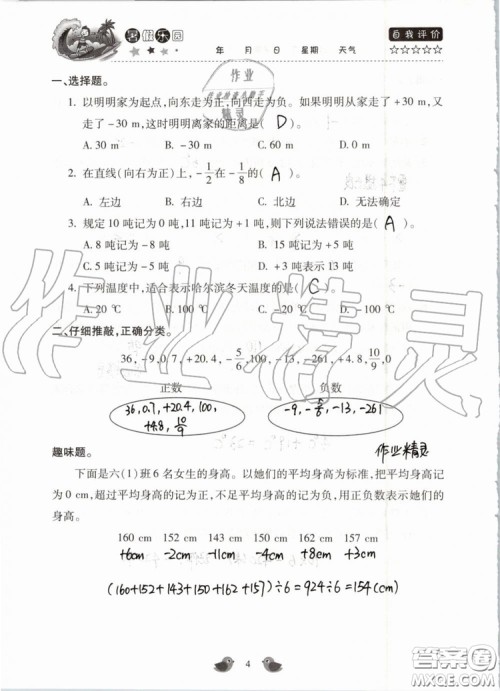 暑假乐园
年 月 日 星期 天气
自我评价
☆☆☆☆☆
一、选择题。
1. 以明明家为起点,向东走为正,向西走为负。如果明明从家走了+30 m,又
走了-30 m,这时明明离家的距离是( D )。
A. 30 m B. -30 m C. 60 m D. 0 m
2. 在直线(向右为正)上,-1/2在-1/8的( A )。
A. 左边 B. 右边 C. 北边 D. 无法确定
3. 规定 10 吨记为 0 吨,11 吨记为+1 吨,则下列说法错误的是( A )
A. 8 吨记为-8 吨 B. 15 吨记为+5 吨
C. 5 吨记为-5 吨 D. +3 吨表示 13 吨
4. 下列温度中,适合表示哈尔滨冬天温度的是( C )
A. 20 ℃ B. 100 ℃ C. -20 ℃ D. 0 ℃
二、仔细推敲,正确分类。
36,-9,0.7,+20.4,-5/6,100,-13,-261,+4.8,10/9,0
正数 负数
36, 0.7, +20.4, 100,
+4.8, 10/9
-9, -5/6, -13, -261
作业精灵
趣味题。
下面是六(1)班 6 名女生的身高。以她们的平均身高为标准,把平均身高记
为 0 cm,超过平均身高的记为正,不足平均身高的记为负,用正负数表示她们的
身高。
160 cm 152 cm 143 cm 150 cm 162 cm 157 cm
+6cm -2cm -11cm -4cm +8cm +3cm
(160+152+143+150+162+157)÷6=924÷6=154(cm)
4
作业精灵
答案圈
MXQE.COM